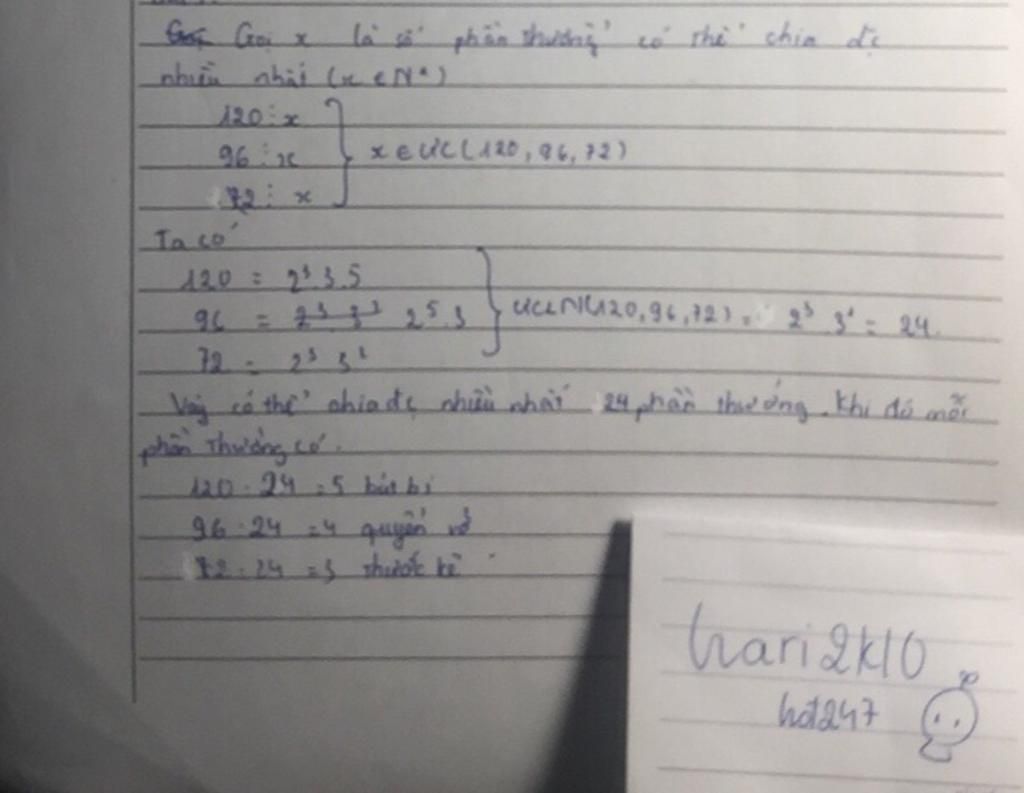 Gọi x là số phần thưởng có thể chia đc
nhiều nhất (x ∈ N*)
120 ⋮ x
96 ⋮ x
72 ⋮ x
x ∈ ƯC(120, 96, 72)
Ta có
120 = 2³.3.5
96 = 2⁵.3
72 = 2³ 3²
ƯCLN(120,96,72) = 2³ 3¹ = 24
Vậy có thể chia đc nhiều nhất 24 phần thưởng. Khi đó mỗi
phần thưởng có.
120 : 24 = 5 bút bi
96 : 24 = 4 quyển vở
72 : 24 = 3 thước kẻ
hari2k10
hot247